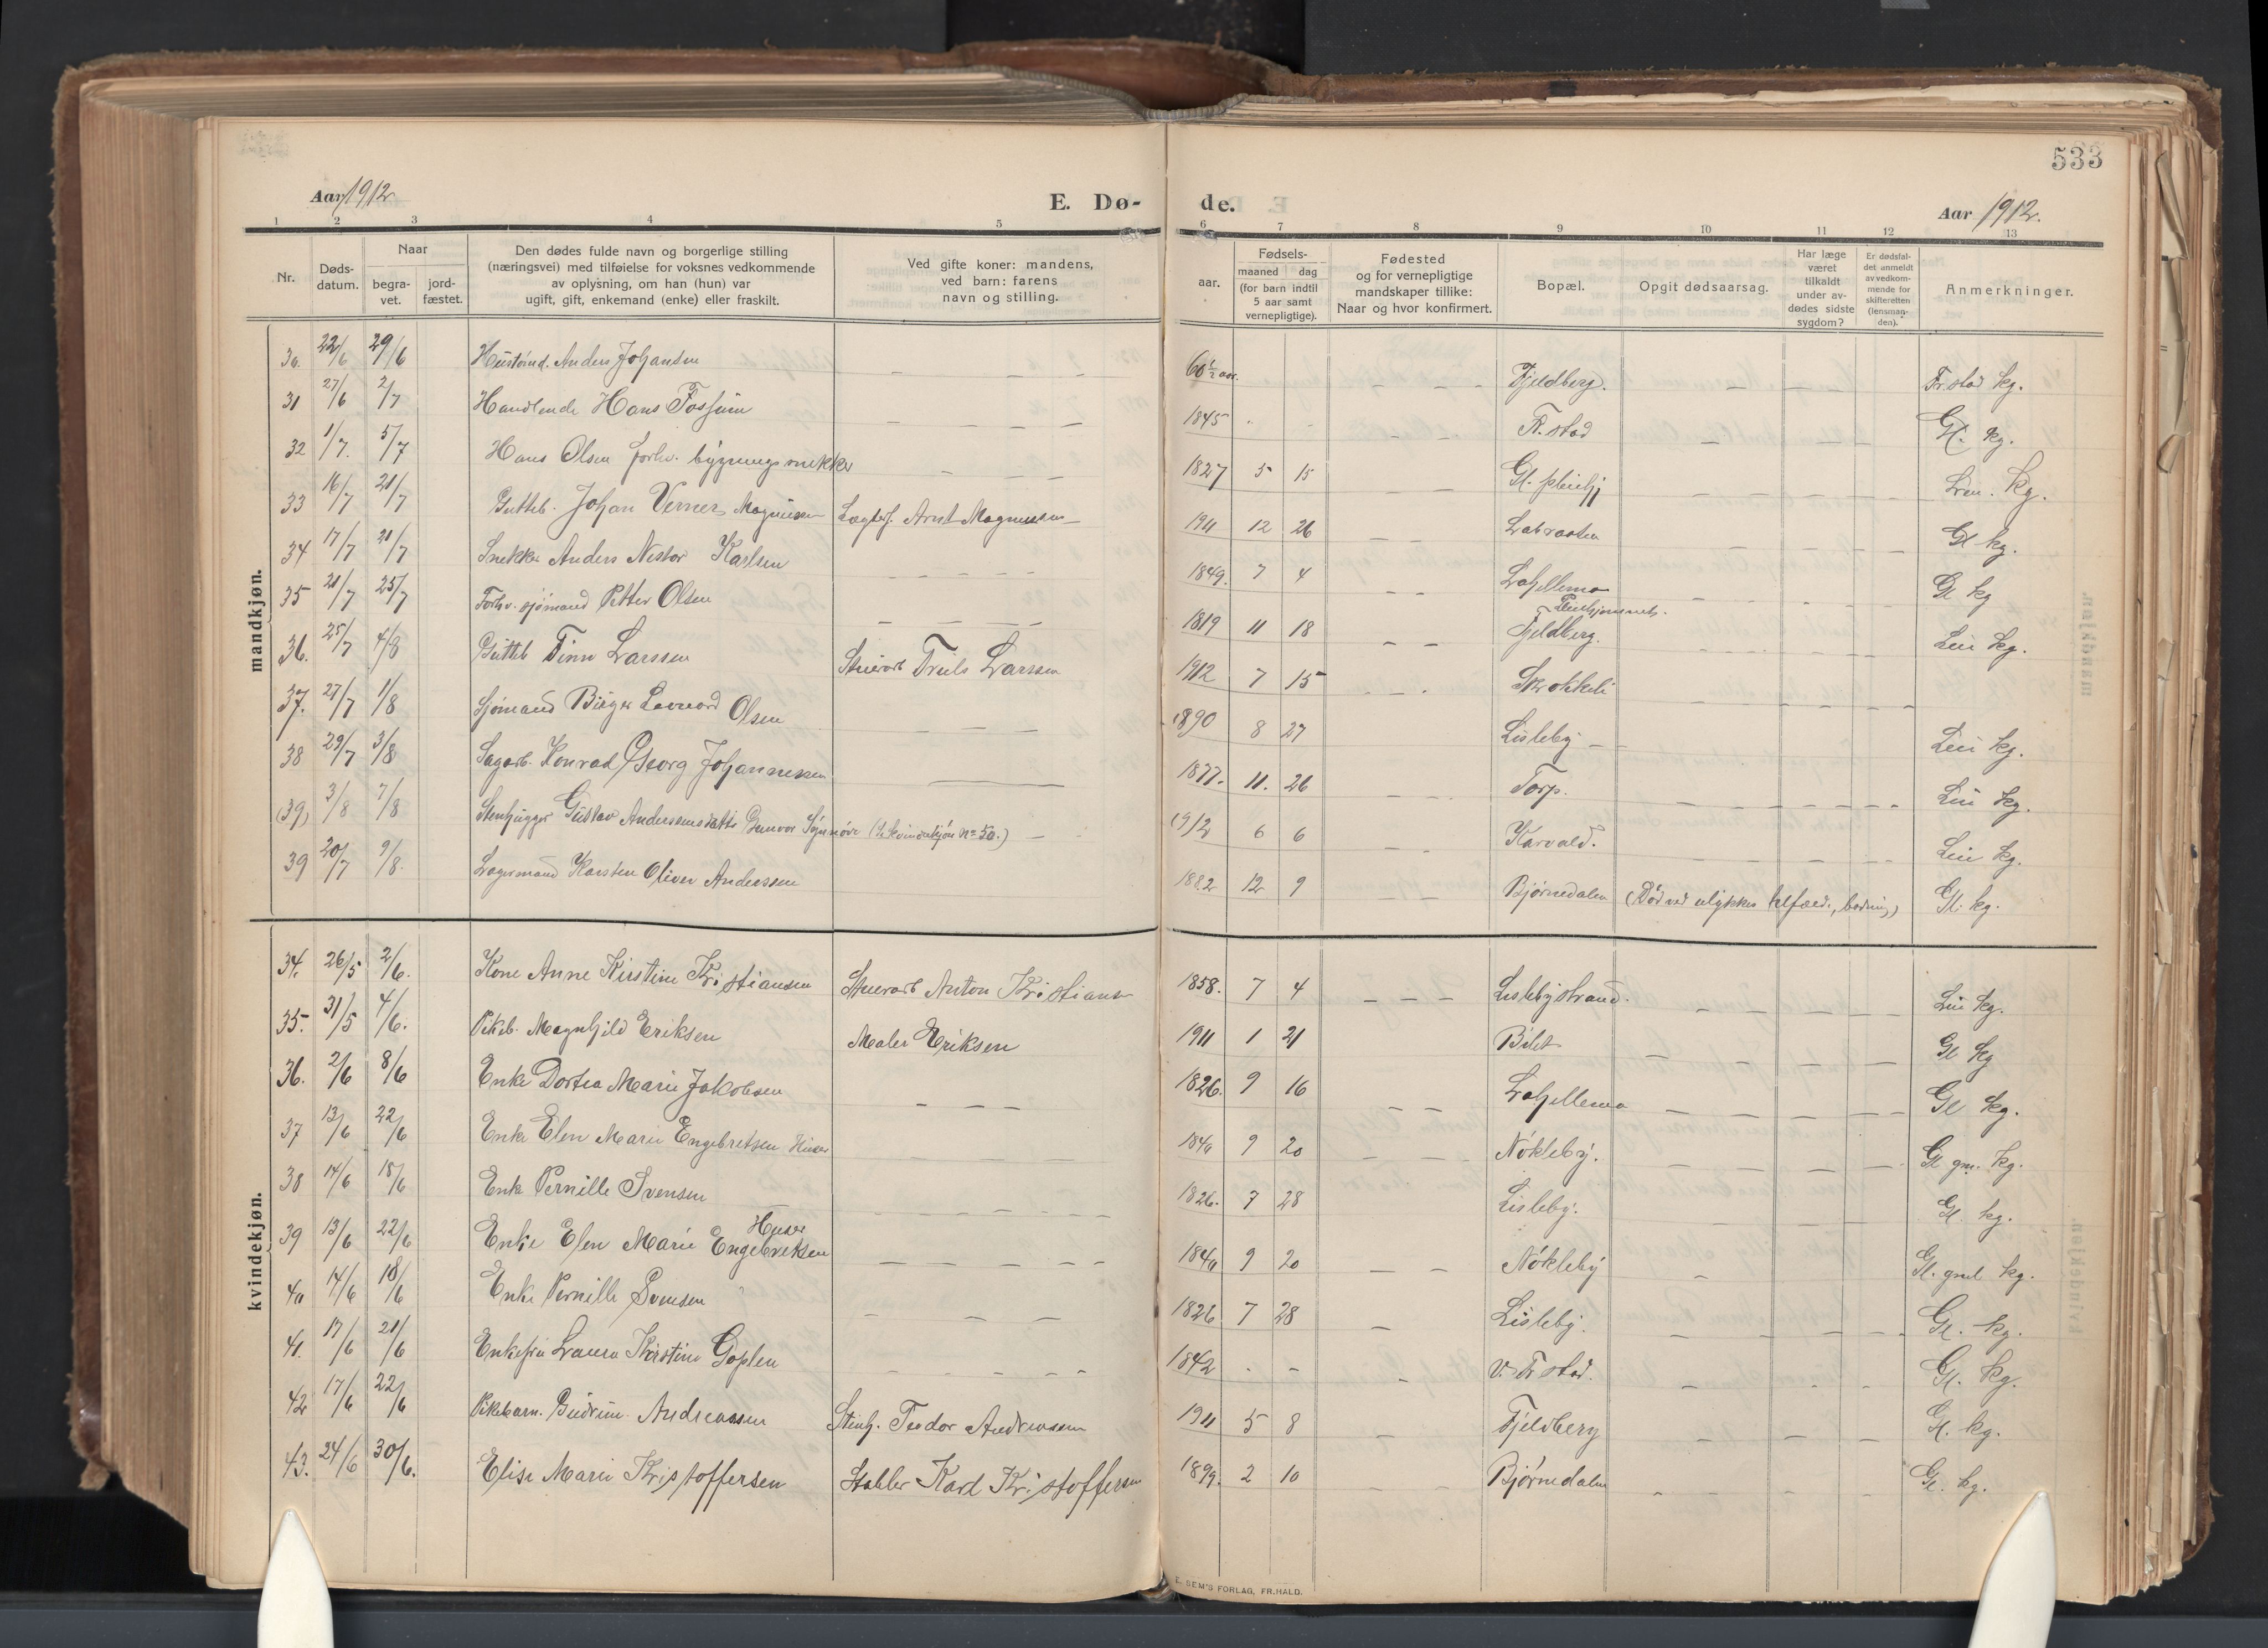 533
Aar 1912 E. Dø- de. Aar 1912.
1 2 3 4 5 6 7 8 9 10 11 12 13
Nr. Døds-datum. Naar begra-vet. jord-fæstet. Den dødes fulde navn og borgerlige stilling (næringsvei) med tilføielse for voksnes vedkommende av oplysning, om han (hun) var ugift, gift, enkemand (enke) eller fraskilt. Ved gifte koner: mandens, ved barn: farens navn og stilling. Fødsels- aar. maaned dag (for barn indtil 5 aar samt vernepligtige). Fødested og for vernepligtige mandskaper tillike: Naar og hvor konfirmert. Bopæl. Opgit dødsaarsag. Har læge været tilkaldt under av-dødes sidste sygdom? Er dødsfal-det anmeldt av vedkom-mende for skifteretten (lensman-den). Anmerkninger.
mandkjøn.
30. 22/6 29/6 Anders Johansen — — — 60 1/2 aar. — — — Fjeldberg. — — — Fr.stad kg.
31 27/6 2/7 Handlende Hans Fossum — — — — 1845 - - — — — Fr. stad — — — Gl. kg.
32 1/7. 5/7 Hans Olsen forhv. bygningssnekker — — — 1827 5 15 — — Gl. pleiehj — — — kg.
33 16/7 21/7 Gutteb. Johan Verner Magnussen Arnt Magnussen 1911 12 26 — — — — — Gl kg.
34 17/7 21/7 Snekker Anders Nestor Karlsen — — — — 1849. 7 4 — — Lahellemo — — — Gl kg
35 21/7 25/7 Forhv. sjømand Petter Olsen — — — — 1819 11 18 — — Fjeldberg. — — — Lei kg.
36. 25/7 4/8 Gutteb Finn Larssen Truls Larssen 1912 7 15 — — — — —
37. 27/7 1/8 Sjømand Birger Leonard Olsen — — — 1890 8 27 Lisleby — — — — Lei kg.
38 29/7 3/8 Sagarb. Konrad Georg Johannessen — 1877. 11. 26 — — Torp. — — — Lei kg.
(39) 3/8 7/8 Stenhugger Gustav Andersens datter Gunvor Synnøve (Se kvindekjøn No 50.) — 1912 6 6 — — Karvald. — — Lei kg.
39 20/7 9/8. Lagermand Karsten Oliver Anderssen 1882 12 9 Bjørnedalen Gl. kg.
kvindekjøn.
34. 26/5 2/6. Kone Anne Kirstine Kristiansen Stuerarb Anton Kristiansen 1858. 7 4 — — — Lislebystrand. — — — Lei kg.
35. 31/5 4/6. Pikeb. Magnhild Eriksen Maler Eriksen 1911 1 21 — — — Gl kg
36. 2/6 8/6 Enke Dortea Marie Jakobsen — — — 1826. 9 16 — — Lahellemo — — — Gl kg.
37 13/6 22/6 Enke Elen Marie Engebretsen Huser — — — — 1840 9 20 — — — Nøkleby. — — — Gl gm. kg.
38 14/6 18/6 Enke Pernille Svensen — — — — 1826. 7 28 Lisleby. Gl. kg.
39 13/6 22/6 Enke Elen Marie Engebretsen Huser — — — — 1840 9 20 — — Nøkleby — Gl. kg.
40 14/6 18/6 Enke Pernille Svensen — — — 1826 7 28 — Lisleby. — — — Gl. kg.
41. 17/6 21/6 Enkefru Laura Kirstine Goplen — — — — 1842 - - — V. Fr stad. — — — Gl. kg.
42 17/6 22/6 Pikebarn. Gudrun Andreassen Stenh. Teodor Andreassen 1911 5 8 — Fjeldberg — — — Gl. kg.
43. 24/6 30/6. Elise Marie Kristoffersen Stabler Karl Kristoffersen 1899. 2 10 — — Bjørnedalen — — — Gl. kg.
E. SEM'S FORLAG, FR.HALD.